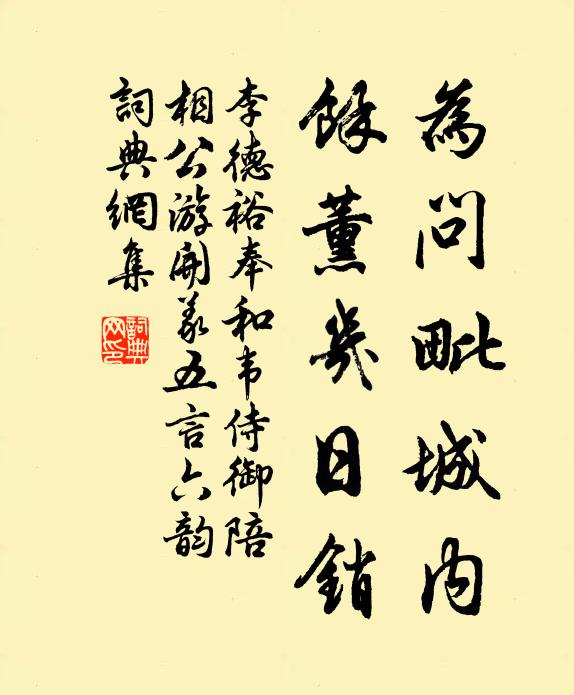 為問毗城內
餘薰幾日銷
李德裕奉和韦侍御陪
相公游開義五言六韵
詞典網集
詞典网印